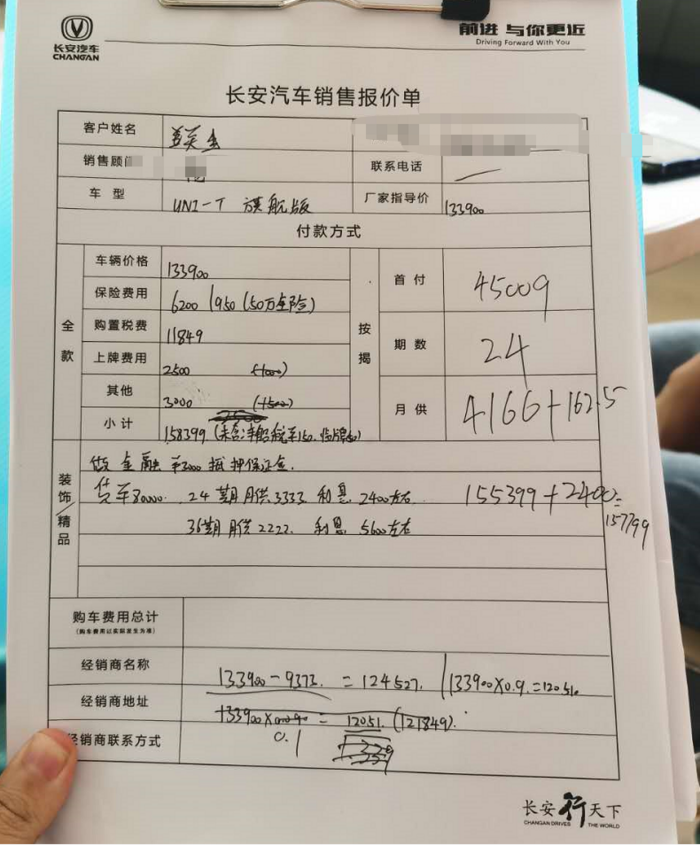 长安汽车
CHANGAN
前进 与你更近
Driving Forward With You
长安汽车销售报价单
客户姓名
销售顾 联系电话
车型 UNI-T 旗舰版 厂家指导价 133900
付款方式
全款 车辆价格 133900 按揭 首付 45009
保险费用 6200 1950 (50万全险)
购置税费 11849 期数 24
上牌费用 2500
其他 3000 月供 4166+162.5
小计 158399
装饰/精品 做金融 ¥3000 抵押保证金.
贷车80000. 24期月供3333 利息2400左右 155399+2400=
157799
36期月供2222. 利息5600左右
购车费用总计
(购车费用以实际发生为准)
经销商名称 133900-9373. =124527. 133900×0.9.=120510
经销商地址 = 12051. (121849).
0.1
经销商联系方式
长安行天下
CHANGAN DRIVES THE WORLD